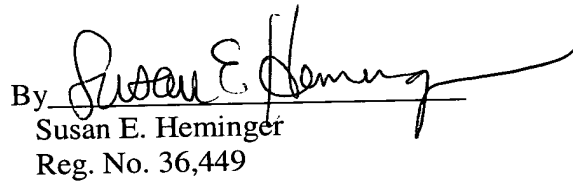 By Susan E Heminger
Susan E. Heminger
Reg. No. 36,449